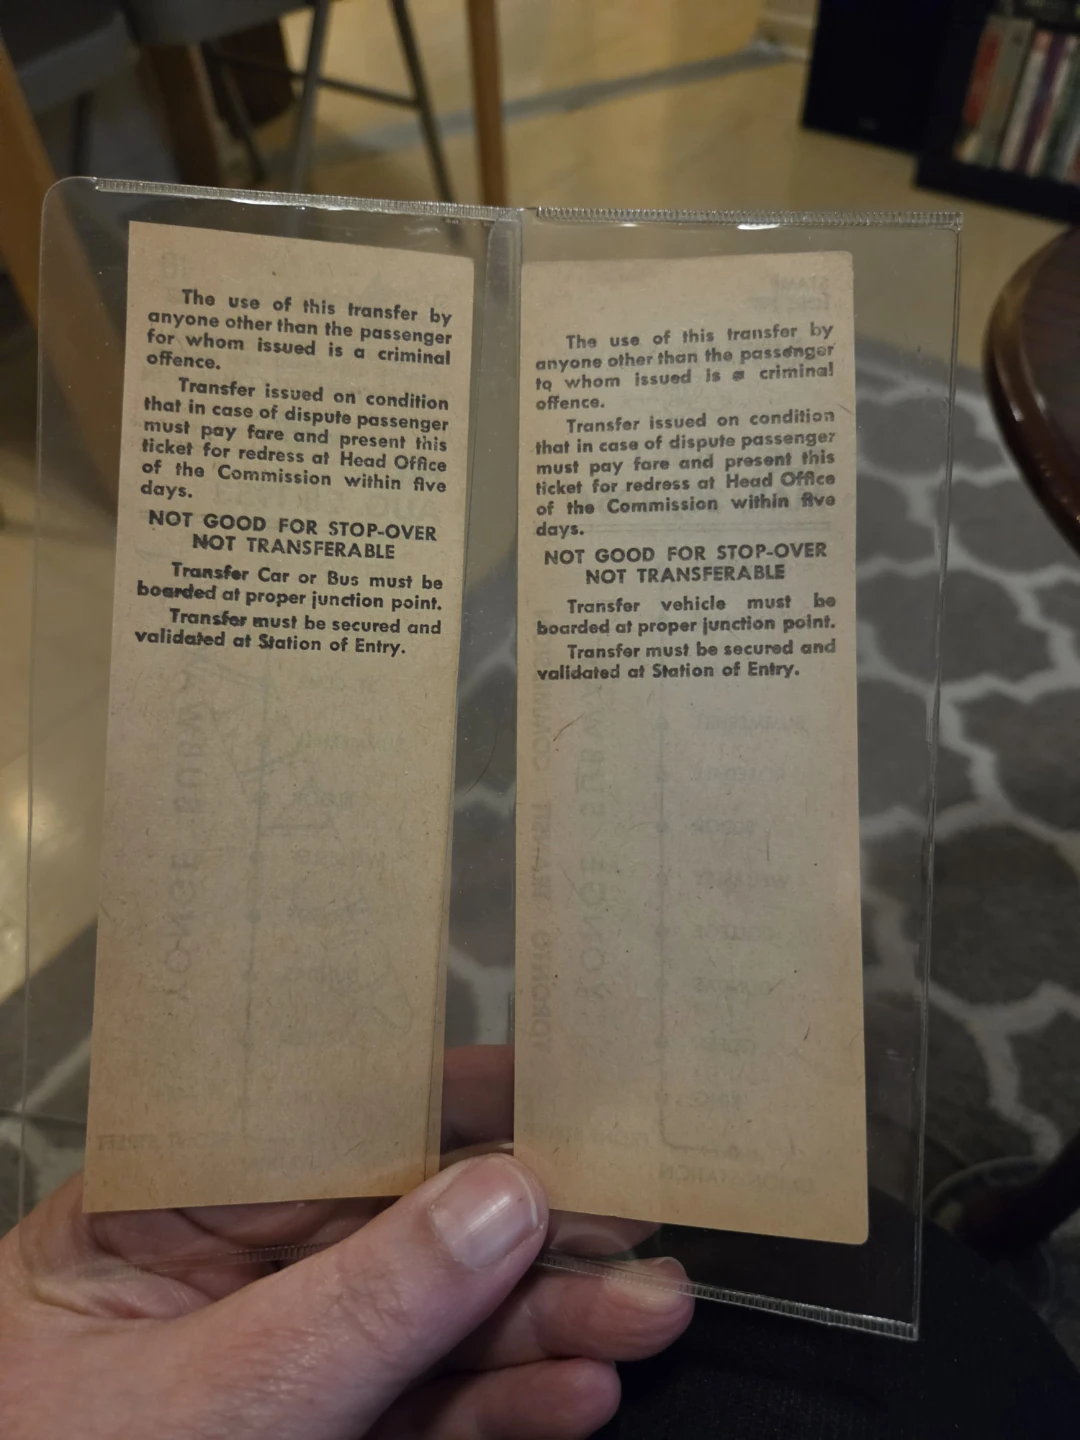 The use of this transfer by
anyone other than the passenger
for whom issued is a criminal
offence.
Transfer issued on condition
that in case of dispute passenger
must pay fare and present this
ticket for redress at Head Office
of the Commission within five
days.
NOT GOOD FOR STOP-OVER
NOT TRANSFERABLE
Transfer Car or Bus must be
boarded at proper junction point.
Transfer must be secured and
validated at Station of Entry.
YONGE SUBWAY
The use of this transfer by
anyone other than the passenger
to whom issued is a criminal
offence.
Transfer issued on condition
that in case of dispute passenger
must pay fare and present this
ticket for redress at Head Office
of the Commission within five
days.
NOT GOOD FOR STOP-OVER
NOT TRANSFERABLE
Transfer vehicle must be
boarded at proper junction point.
Transfer must be secured and
validated at Station of Entry.
TORONTO TRANSIT
YONGE SUBWAY